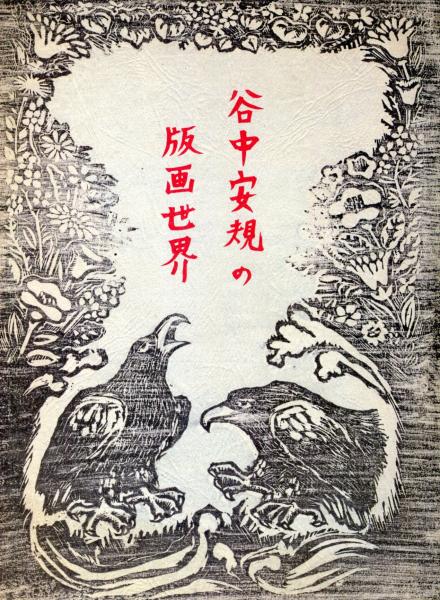 谷中安規の
版画世界